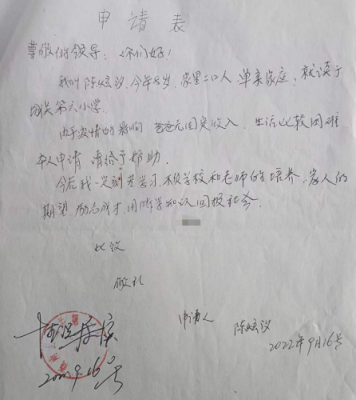 申请表
尊敬的领导：你们好！
我叫陈炫汐，今年8岁，家里二口人 单亲家庭，就读于
第六小学。
由于疫情的影响 爸爸无固定收入，生活比较困难
本人申请 请给予帮助．
今后我一定刻苦学习 不负学校和老师的培养、家人的
期望 励志成才 用所学知识回报社会．
此致
敬礼
申请人 陈炫汐
2022年9月16号
9.16号